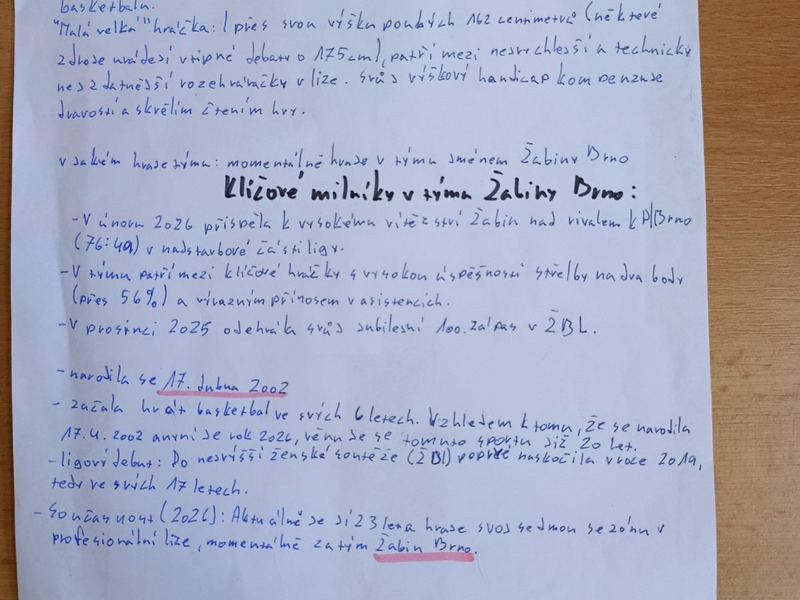 basketbalu.
"Malá velká" hráčka: I přes svou výšku pouhých 162 centimetrů (některé
zdroje uvádějí vtipné debaty o 175cm), patří mezi nejrychlejší a technicky
nejzdatnější rozehrávačky v lize. Svůj výškový handicap kompenzuje
dravostí a skvělím čtením hry.
v jakém hraje týmu: momentálně hraje v týmu jménem Žabiny Brno
Klíčové milníky v týmu Žabiny Brno:
-V únoru 2026 přispěla k vysokému vítězství Žabin nad rivalem KP Brno
(76:49) v nadstavbové části ligy.
-V týmu patří mezi klíčové hráčky s vysokou úspěšností střelby na dva body
(přes 56%) a výrazným přínosem v asistencích.
-V prosinci 2025 odehrála svůj jubilejní 100. zápas v ŽBL.
-narodila se 17. dubna 2002
- začala hrát basketbal ve svých 6 letech. Vzhledem k tomu, že se narodila
17.4. 2002 a nyní je rok 2026, věnuje se tomuto sportu již 20 let.
-ligový debut: Do nejvyšší ženské soutěže (ŽBl) poprvé naskočila v roce 2019,
tedy ve svých 17 letech.
- Současnost (2026): Aktuálně je jí 23 let a hraje svoj sedmou sezónu v
profesionální lize, momentálně za tým Žabin Brno.